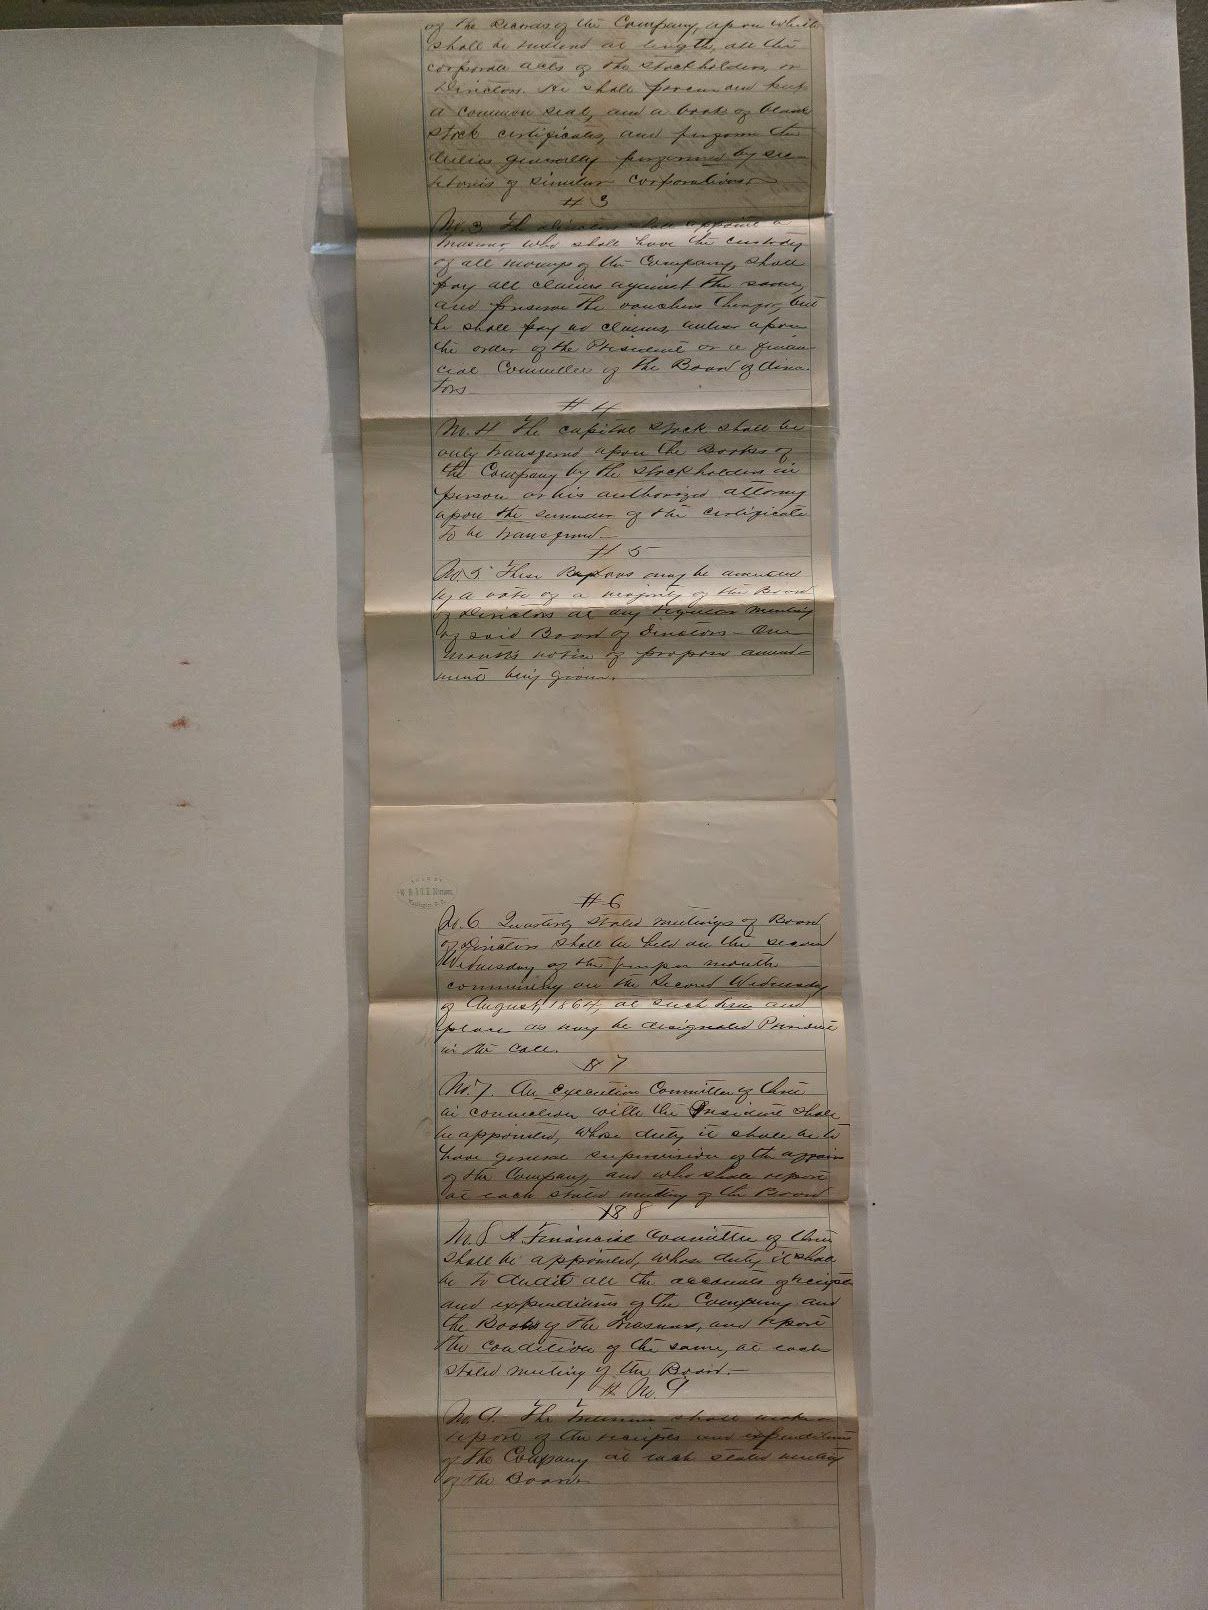 of the Records of the Company, upon which
shall be entered at length, all the
corporate acts of the stockholders, or
Directors. He shall procure and keep
a common seal, and a book of blank
stock certificates, and perform the
duties generally performed by sec-
retaries of similar corporations.
# 3
No. 3 The directors shall appoint a
Treasurer, who shall have the custody
of all moneys of the Company, shall
pay all claims against the same,
and preserve the vouchers therefor, but
he shall pay no claims, unless upon
the order of the President or a finan-
cial Committee of the Board of direc-
tors
# 4
No. 4 The capital stock shall be
only transferred upon the Books of
the Company by the stockholders in
person or his authorized attorney
upon the surrender of the certificate
to be transferred—
# 5
No. 5 These Bylaws may be amended
by a vote of a majority of the Board
of Directors at any regular meeting
of said Board of Directors— One
month's notice of proposed amend-
ment being given.
# 6
No. 6 Quarterly stated meetings of Board
of Directors shall be held on the second
Wednesday of the proper month
commencing on the Second Wednesday
of August, 1864, at such time and
place as may be designated
in the call.
# 7
No. 7. An executive Committee of three
in connection with the President shall
be appointed, whose duty it shall be to
have general supervision of the affairs
of the Company, and who shall report
at each stated meeting of the Board
# 8
No. 8 A Financial Committee of three
shall be appointed, whose duty it shall
be to Audit all the accounts of receipts
and expenditures of the Company and
the Books of the Treasurer, and report
the condition of the same, at each
stated meeting of the Board.—
# No. 9
No. 9. The Treasurer shall make a
report of the receipts and expenditures
of the Company at each stated meeting
of the Board